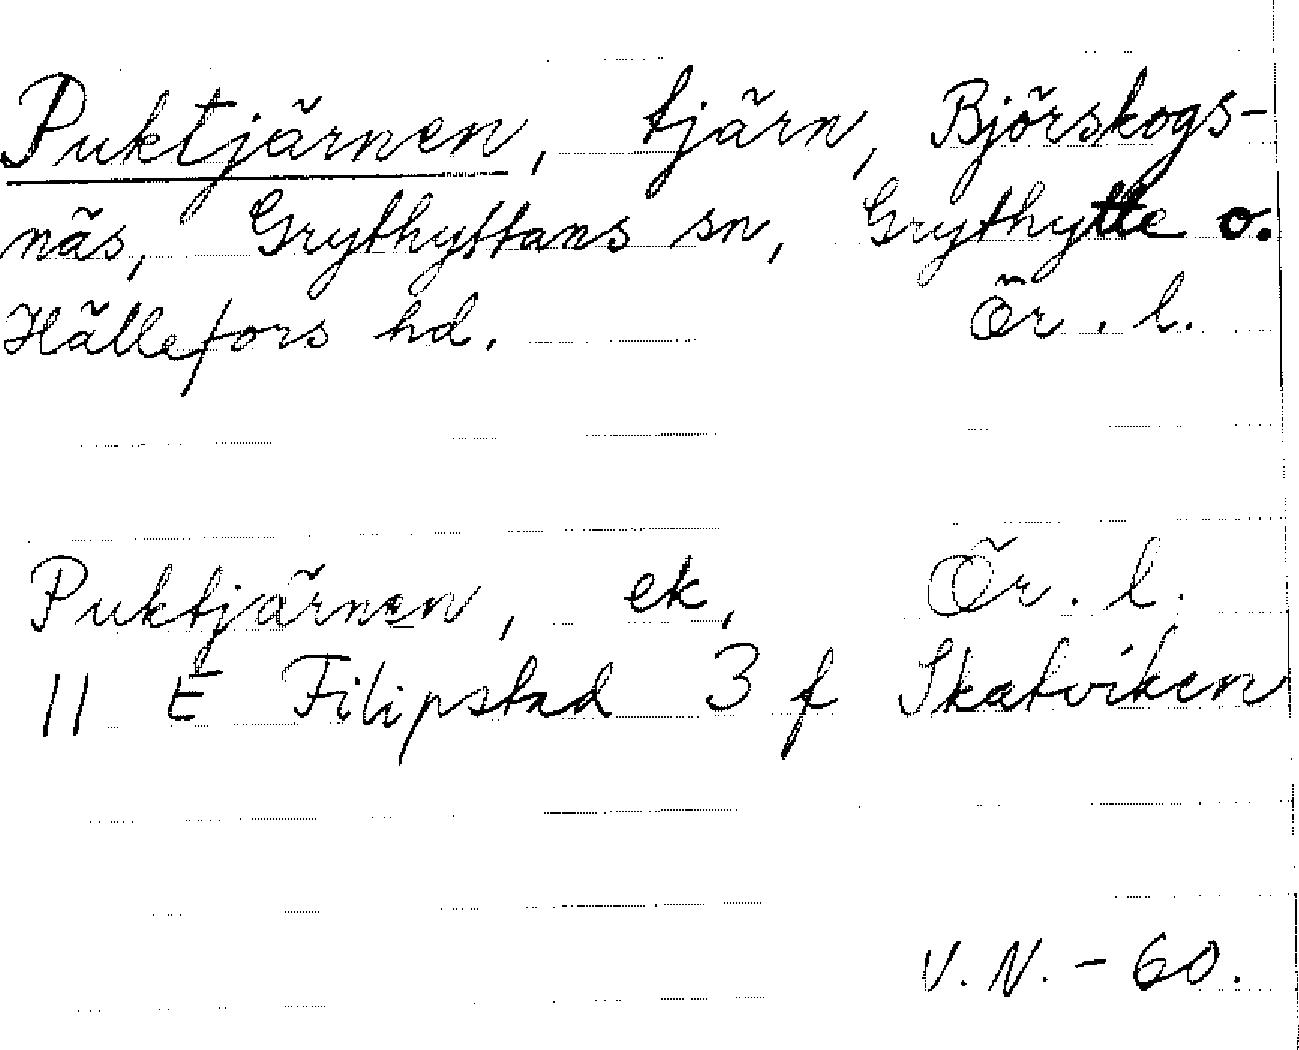 Puktjärnen, tjärn, Björskogs-
näs, Grythyttans sn, Grythytte o.
Hällefors hd. Ör. l.
Puktjärnen, ek, Ör. l.
11 E Filipstad 3 f Skatviken
V. N. - 60.